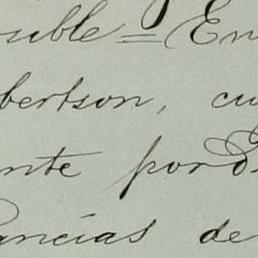 sible = En
bertson, cu
nte por D
ancias de